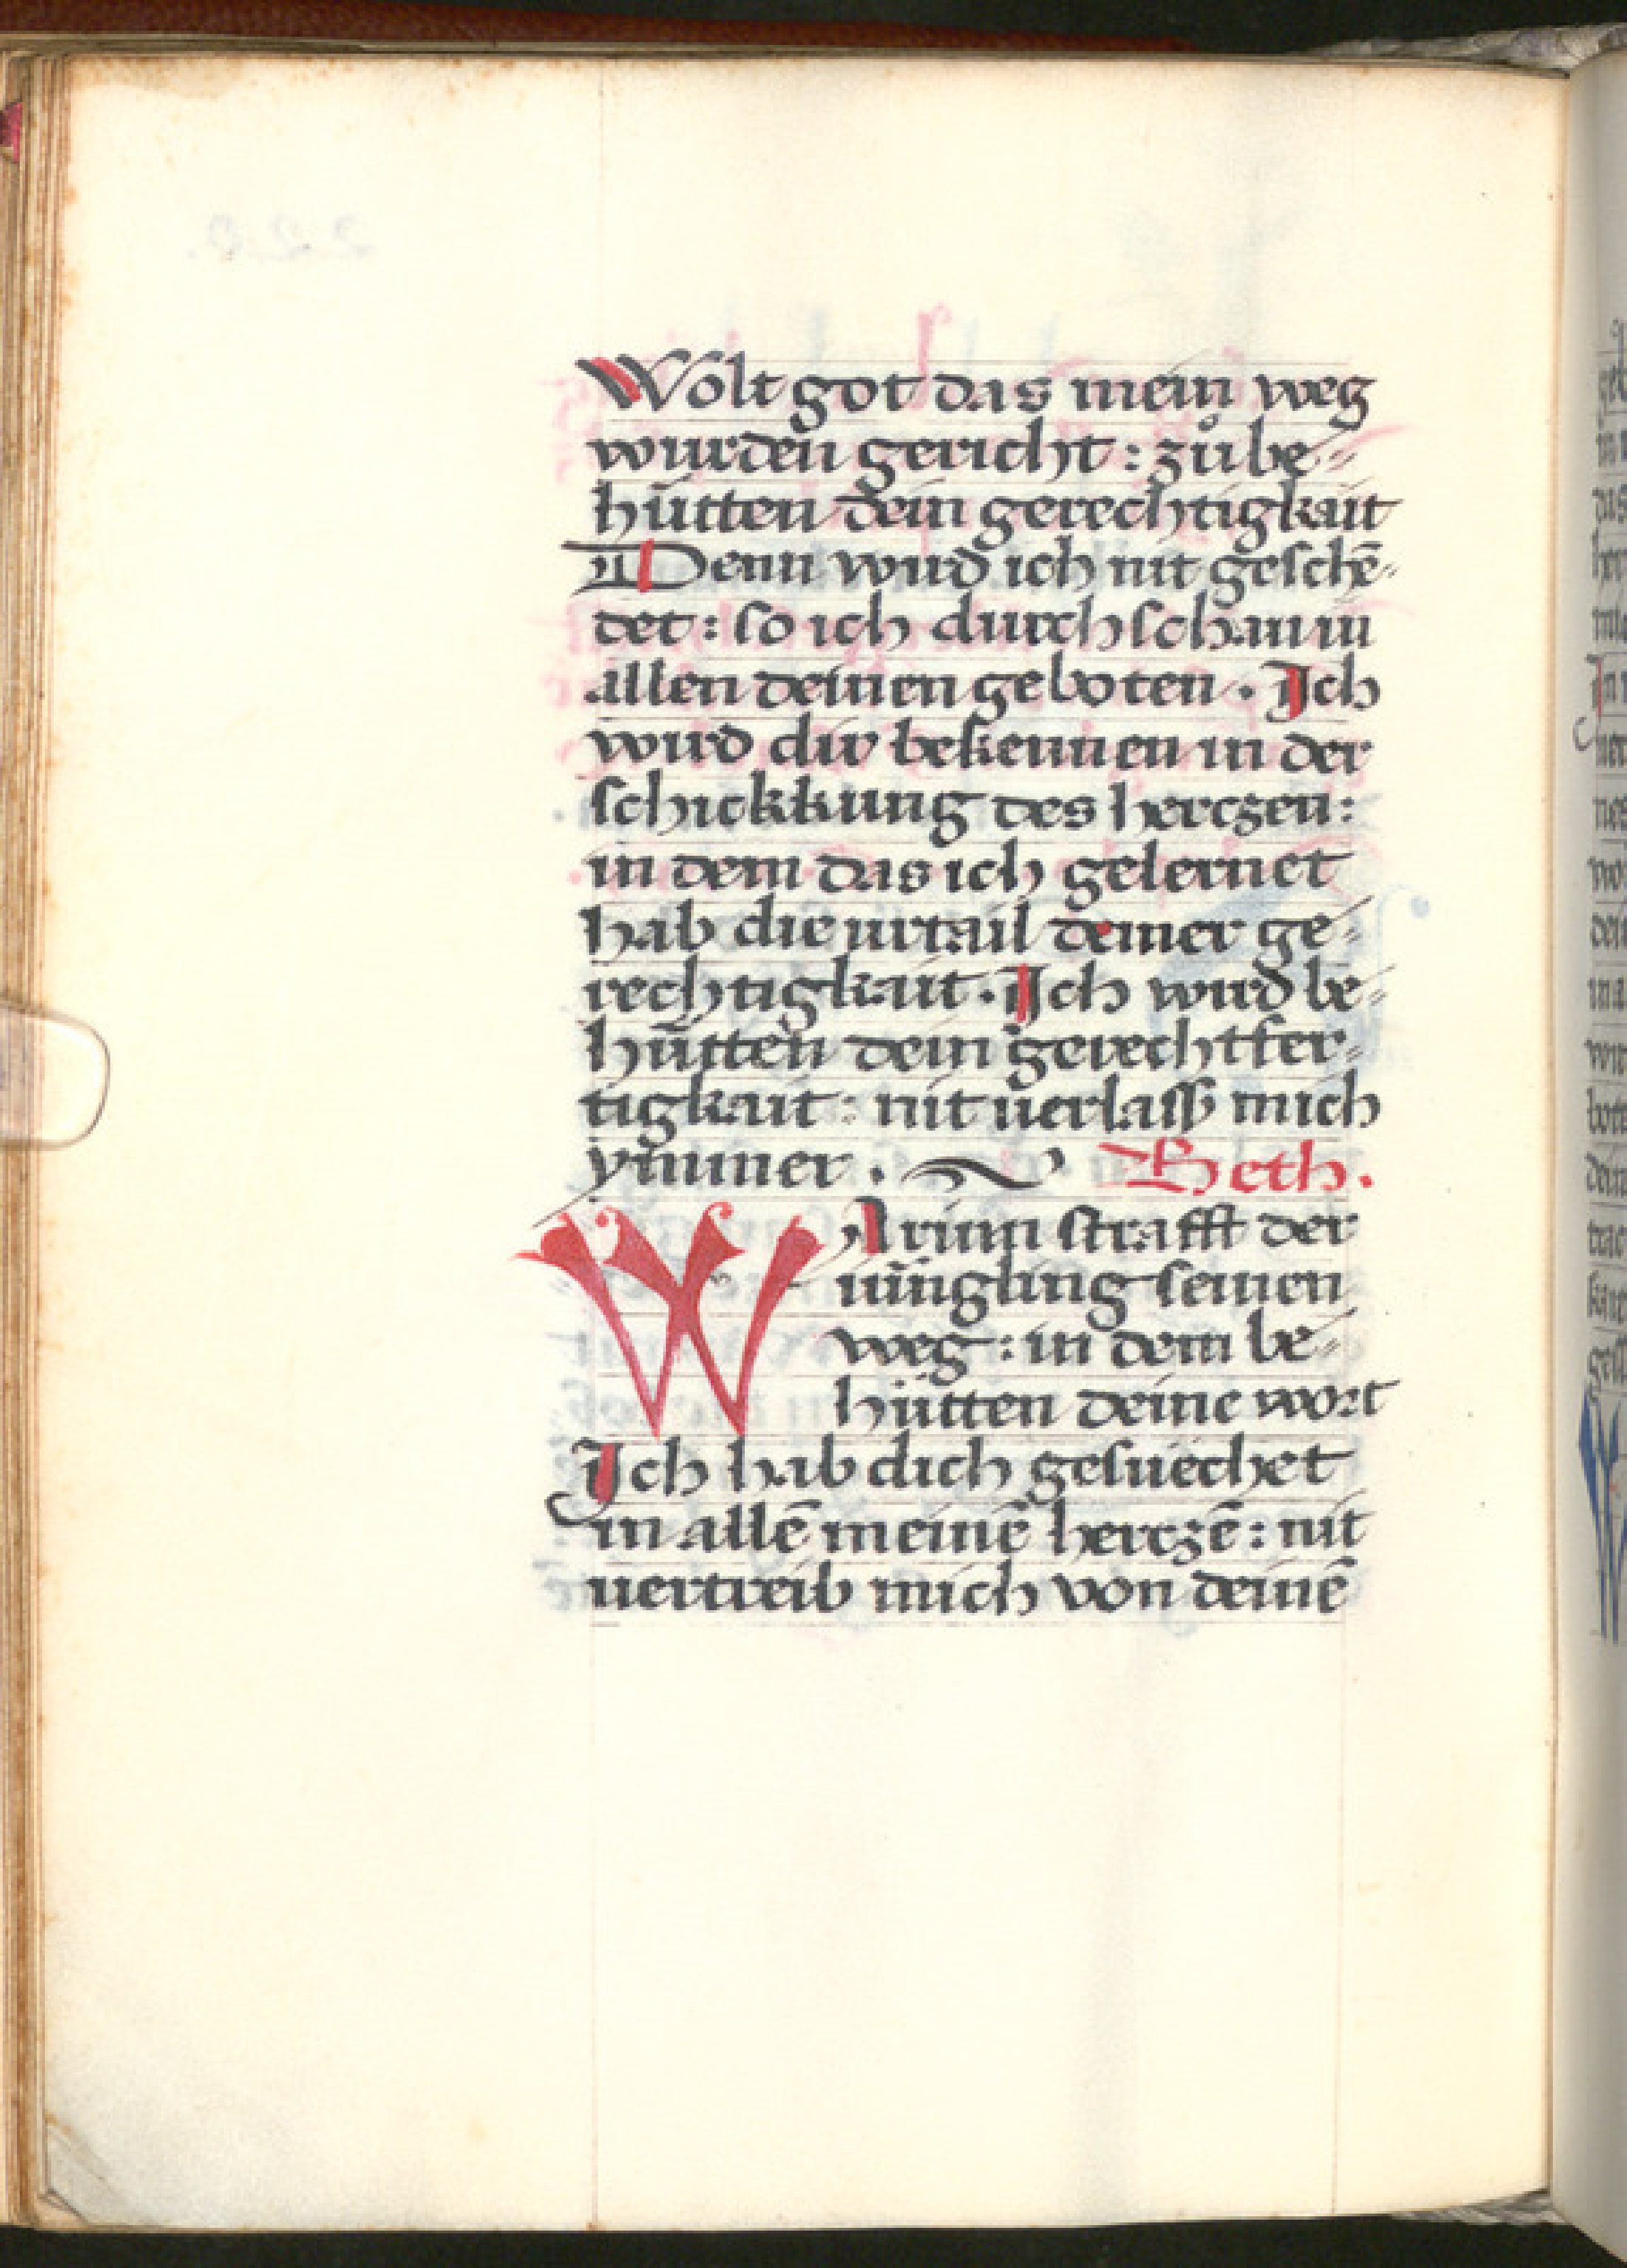 Wolt got das mein weg
wurden gericht : zů be⸗
hütten dein gerechtigkait
Denn wird ich nit geschē⸗
det : so ich durchschaw in
allen deinen geboten . Ich
wird dir bekennen in der
schickkung des herczen :
in dem das ich gelernet
hab die urtail deiner ge⸗
rechtigkait . Ich wird be⸗
hütten dein gerechtfer⸗
tigkait : nit uerlass mich
ymmer . Beth .
WArinn strafft der
iüngling seinen
weg : in dem be⸗
hütten deine wort
Ich hab dich gesuechet
in allē meinē herczē : nit
uertreib mich von deinē